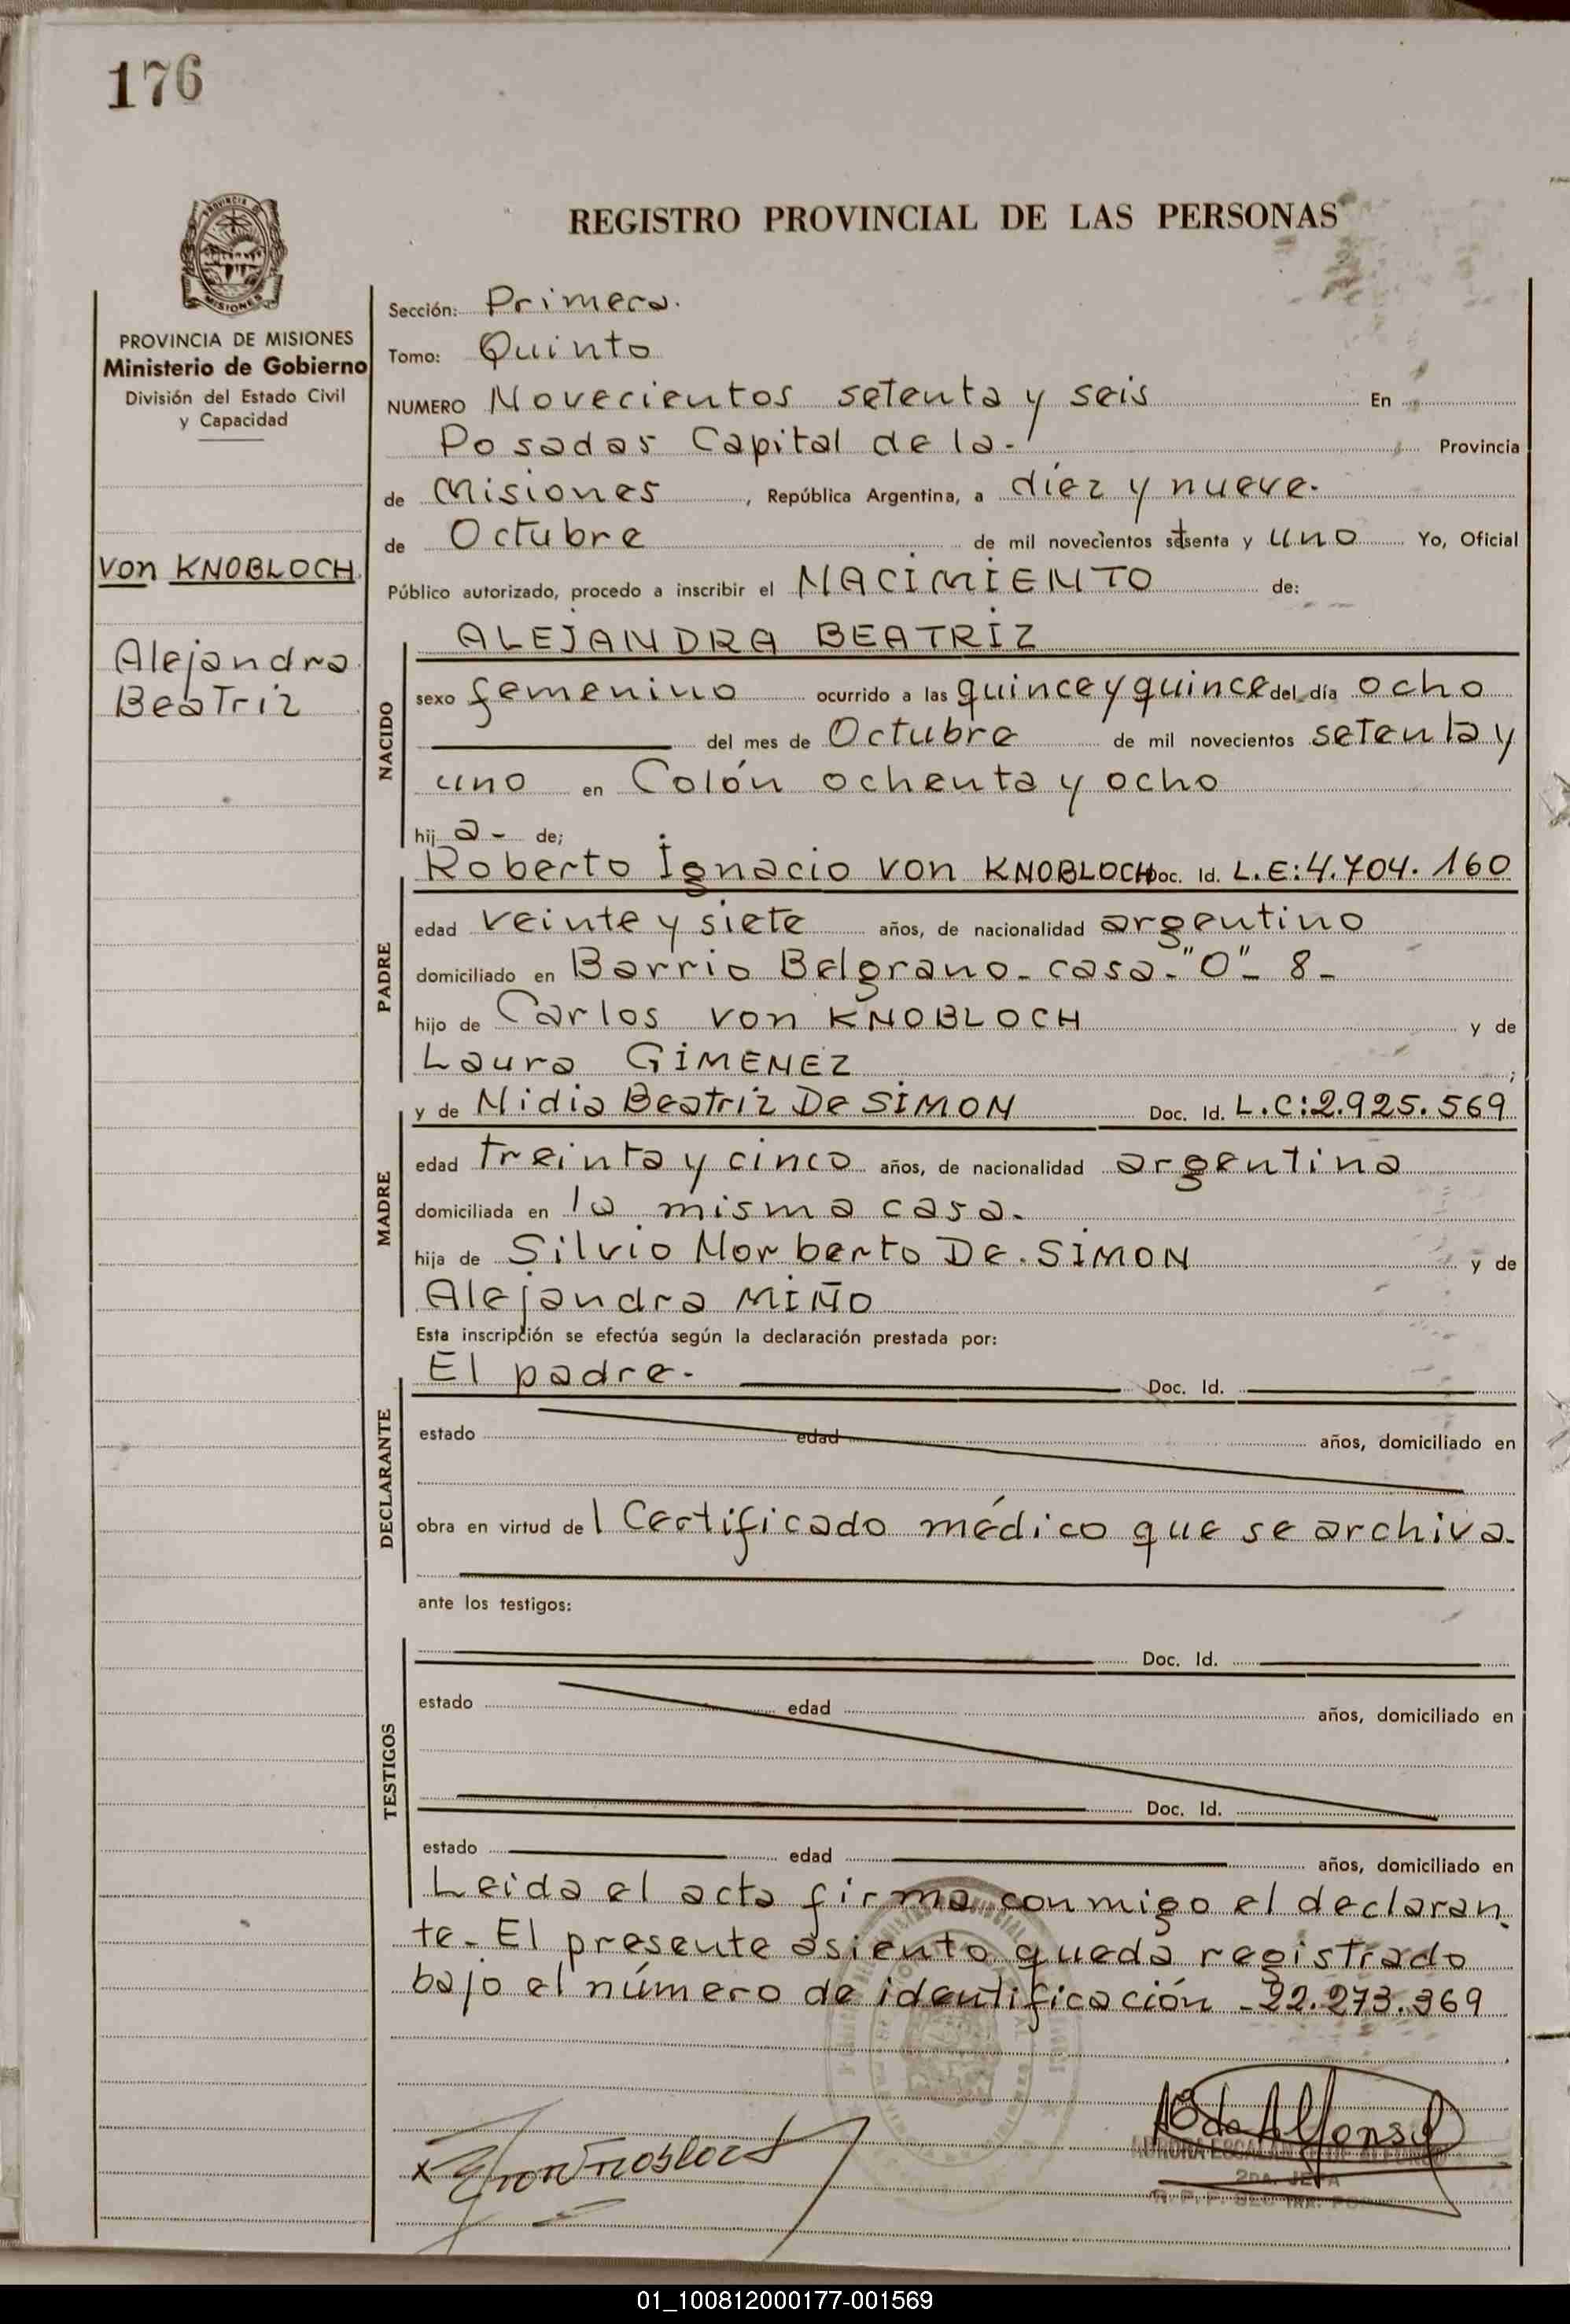 176
REGISTRO PROVINCIAL DE LAS PERSONAS
PROVINCIA DE MISIONES
Ministerio de Gobierno
División del Estado Civil
y Capacidad
von KNOBLOCH
Alejandra
Beatriz
Sección: Primera.
Tomo: Quinto
NUMERO Novecientos setenta y seis En
Posadas Capital de la- Provincia
de Misiones, República Argentina, a diez y nueve.
de Octubre de mil novecientos setenta y uno Yo, Oficial
Público autorizado, procedo a inscribir el NACIMIENTO de:
NACIDO
ALEJANDRA BEATRIZ
sexo femenino ocurrido a las quince y quince del día ocho
del mes de Octubre de mil novecientos setenta y
uno en Colón ochenta y ocho
hij a- de;
PADRE
Roberto Ignacio von KNOBLOCH Doc. Id. L.E:4.704.160
edad veinte y siete años, de nacionalidad argentino
domiciliado en Barrio Belgrano- casa-"O"- 8-
hijo de Carlos von KNOBLOCH y de
Laura GIMENEZ ;
MADRE
y de Nidia Beatriz De SIMON Doc. Id. L.C:2.925.569
edad treinta y cinco años, de nacionalidad argentina
domiciliada en la misma casa.
hija de Silvio Norberto De SIMON y de
Alejandra MIÑO
Esta inscripción se efectúa según la declaración prestada por:
DECLARANTE
El padre- Doc. Id.
estado edad años, domiciliado en
obra en virtud del Certificado médico que se archiva.
ante los testigos:
TESTIGOS
Doc. Id.
estado edad años, domiciliado en
Doc. Id.
estado edad años, domiciliado en
Leida el acta firma conmigo el declaran
te- El presente asiento queda registrado
bajo el número de identificación -22.273.369
2DA. JEFA
01_100812000177-001569